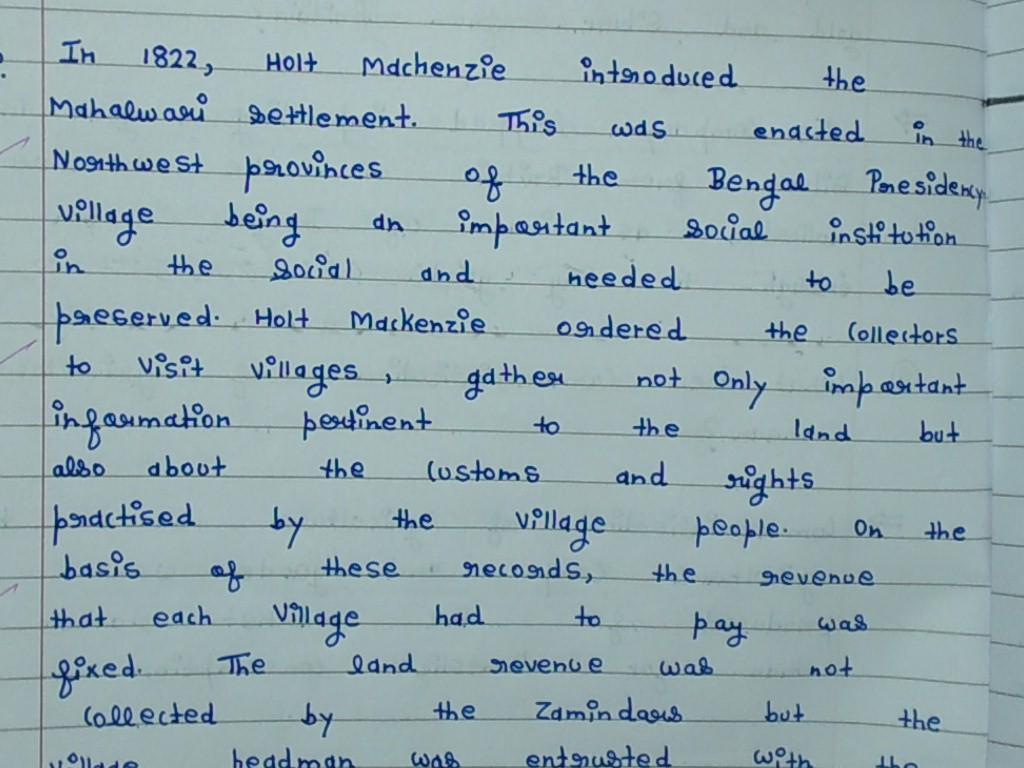 In 1822, Holt Machenzie introduced the
Mahalwari settlement. This was enacted in the
Northwest provinces of the Bengal Presidency
village being an important social institution
in the social and needed to be
preserved. Holt Mackenzie ordered the Collectors
to visit villages, gather not only important
information pertinent to the land but
also about the customs and rights
practised by the village people. On the
basis of these records, the revenue
that each village had to pay was
fixed. The land revenue was not
collected by the Zamindars but the
village headman was entrusted with the